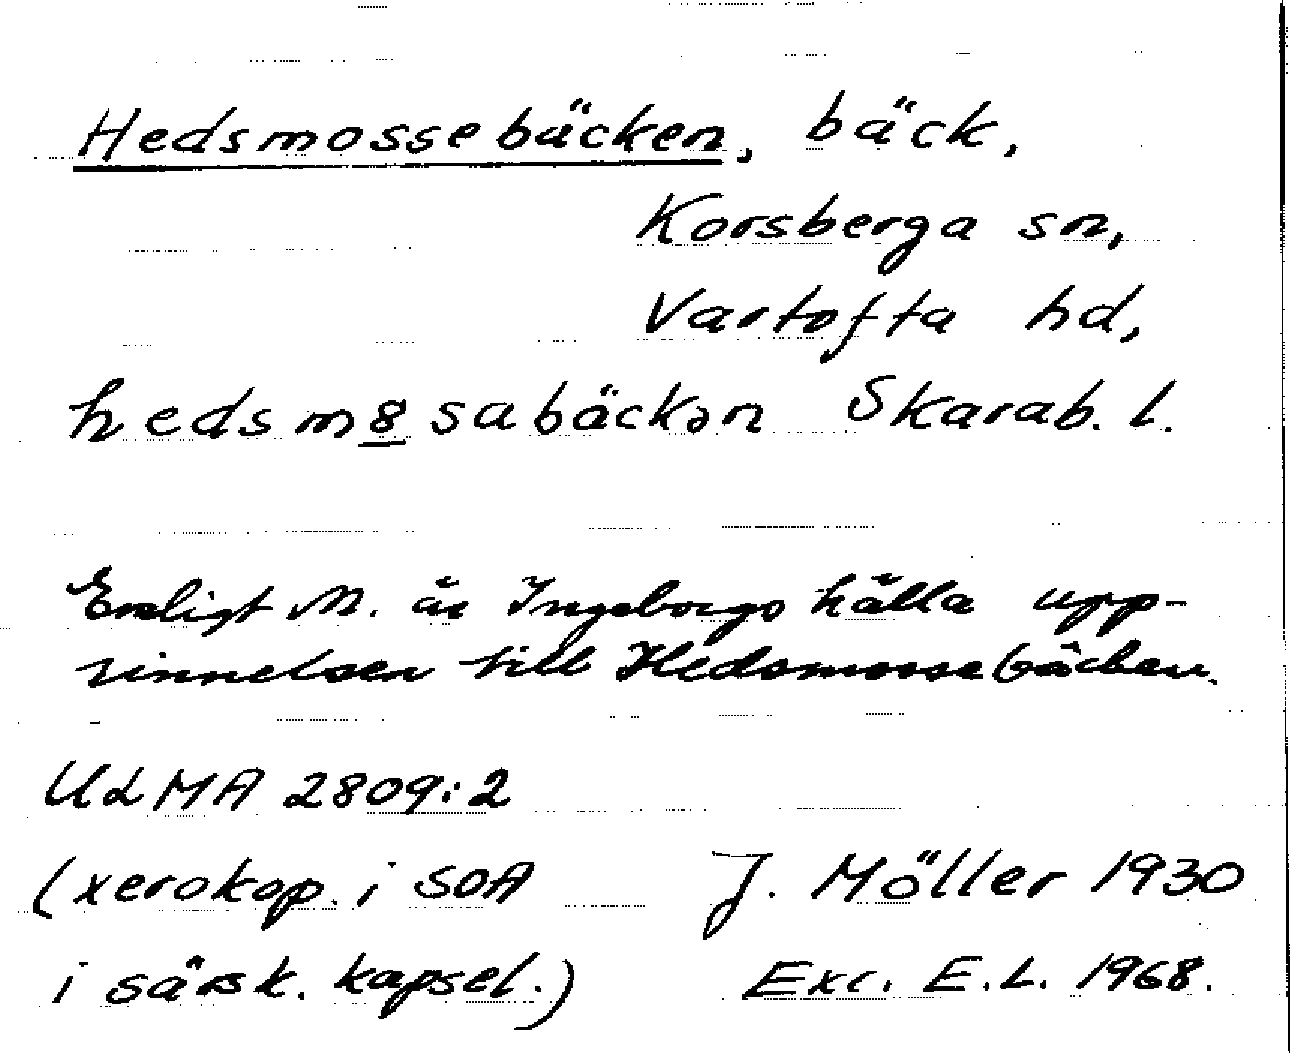 Hedsmossebäcken, bäck,
Korsberga sn,
Vartofta hd,
hedsm8sabäckən Skarab. l.
Enligt M. är Ingeborgs källa upp-
rinnelsen till Hedsmossebäcken.
ULMA 2809:2
(xerokop. i SOA J. Möller 1930
i särsk. kapsel.) Exc. E.L. 1968.